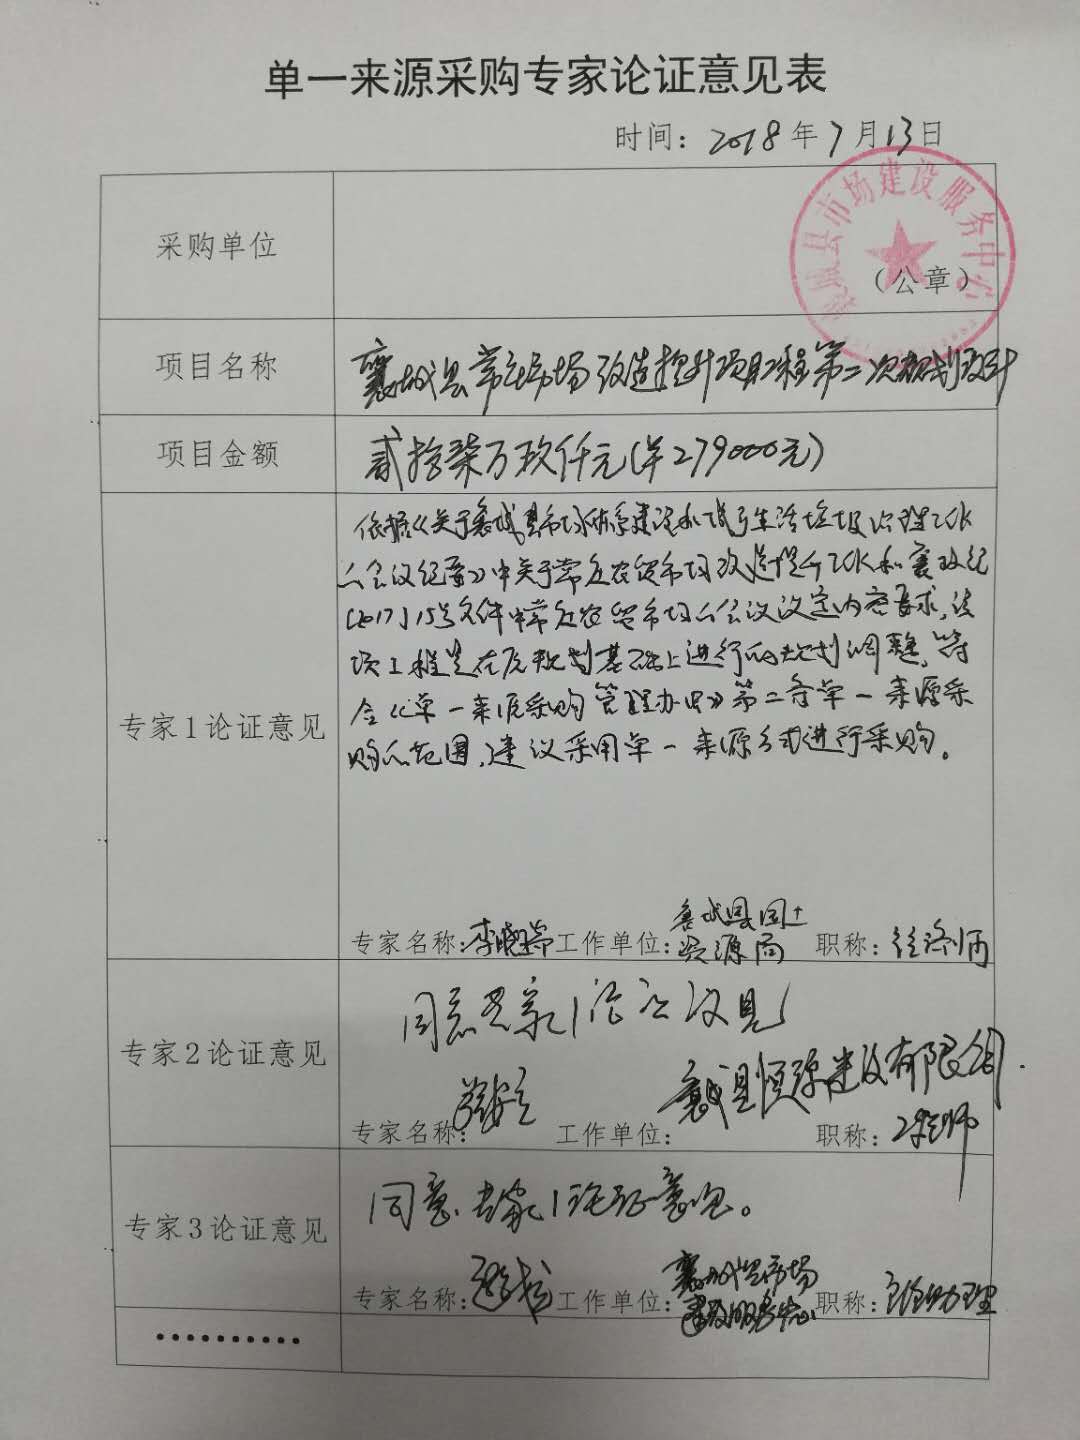 单一来源采购专家论证意见表
时间：2018年7月13日
采购单位
襄城县市场建设服务中心
（公章）
项目名称
襄城县常庄市场改造提升项目工程第二次规划设计
项目金额
贰拾柒万玖仟元(¥279000元)
专家1论证意见
依据《关于襄城县市场体系建设和城乡生活垃圾治理工作
会议纪要》中关于常庄农贸市场改造提升工作和襄政纪
[2017]15号文件中常庄农贸市场会议议定内容要求,该
项工程是在原规划基础上进行的规划调整,符
合《单一来源采购管理办法》第二条单一来源采
购的范围,建议采用单一来源方式进行采购。
专家名称：李晓瑞 工作单位：襄城县国土资源局 职称：经济师
专家2论证意见
同意专家1论证议见
专家名称： 工作单位：襄城县恒源建设有限公司 职称：工程师
专家3论证意见
同意专家1论证意见。
专家名称： 工作单位：襄城县市场建设服务中心 职称：助理
••••••••••